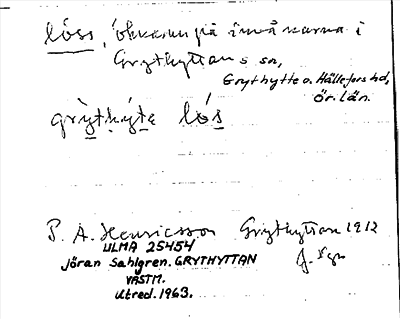 lóss, öknamn på invånarna i
Grythyttans sn,
Grythytte o. Hällefors hd,
Ör. län.
grỳthýta lós
P. A. Henricsson Grythyttan 1912
ULMA 25454
Jöran Sahlgren. GRYTHYTTAN
VÄSTM.
Utred. 1963.